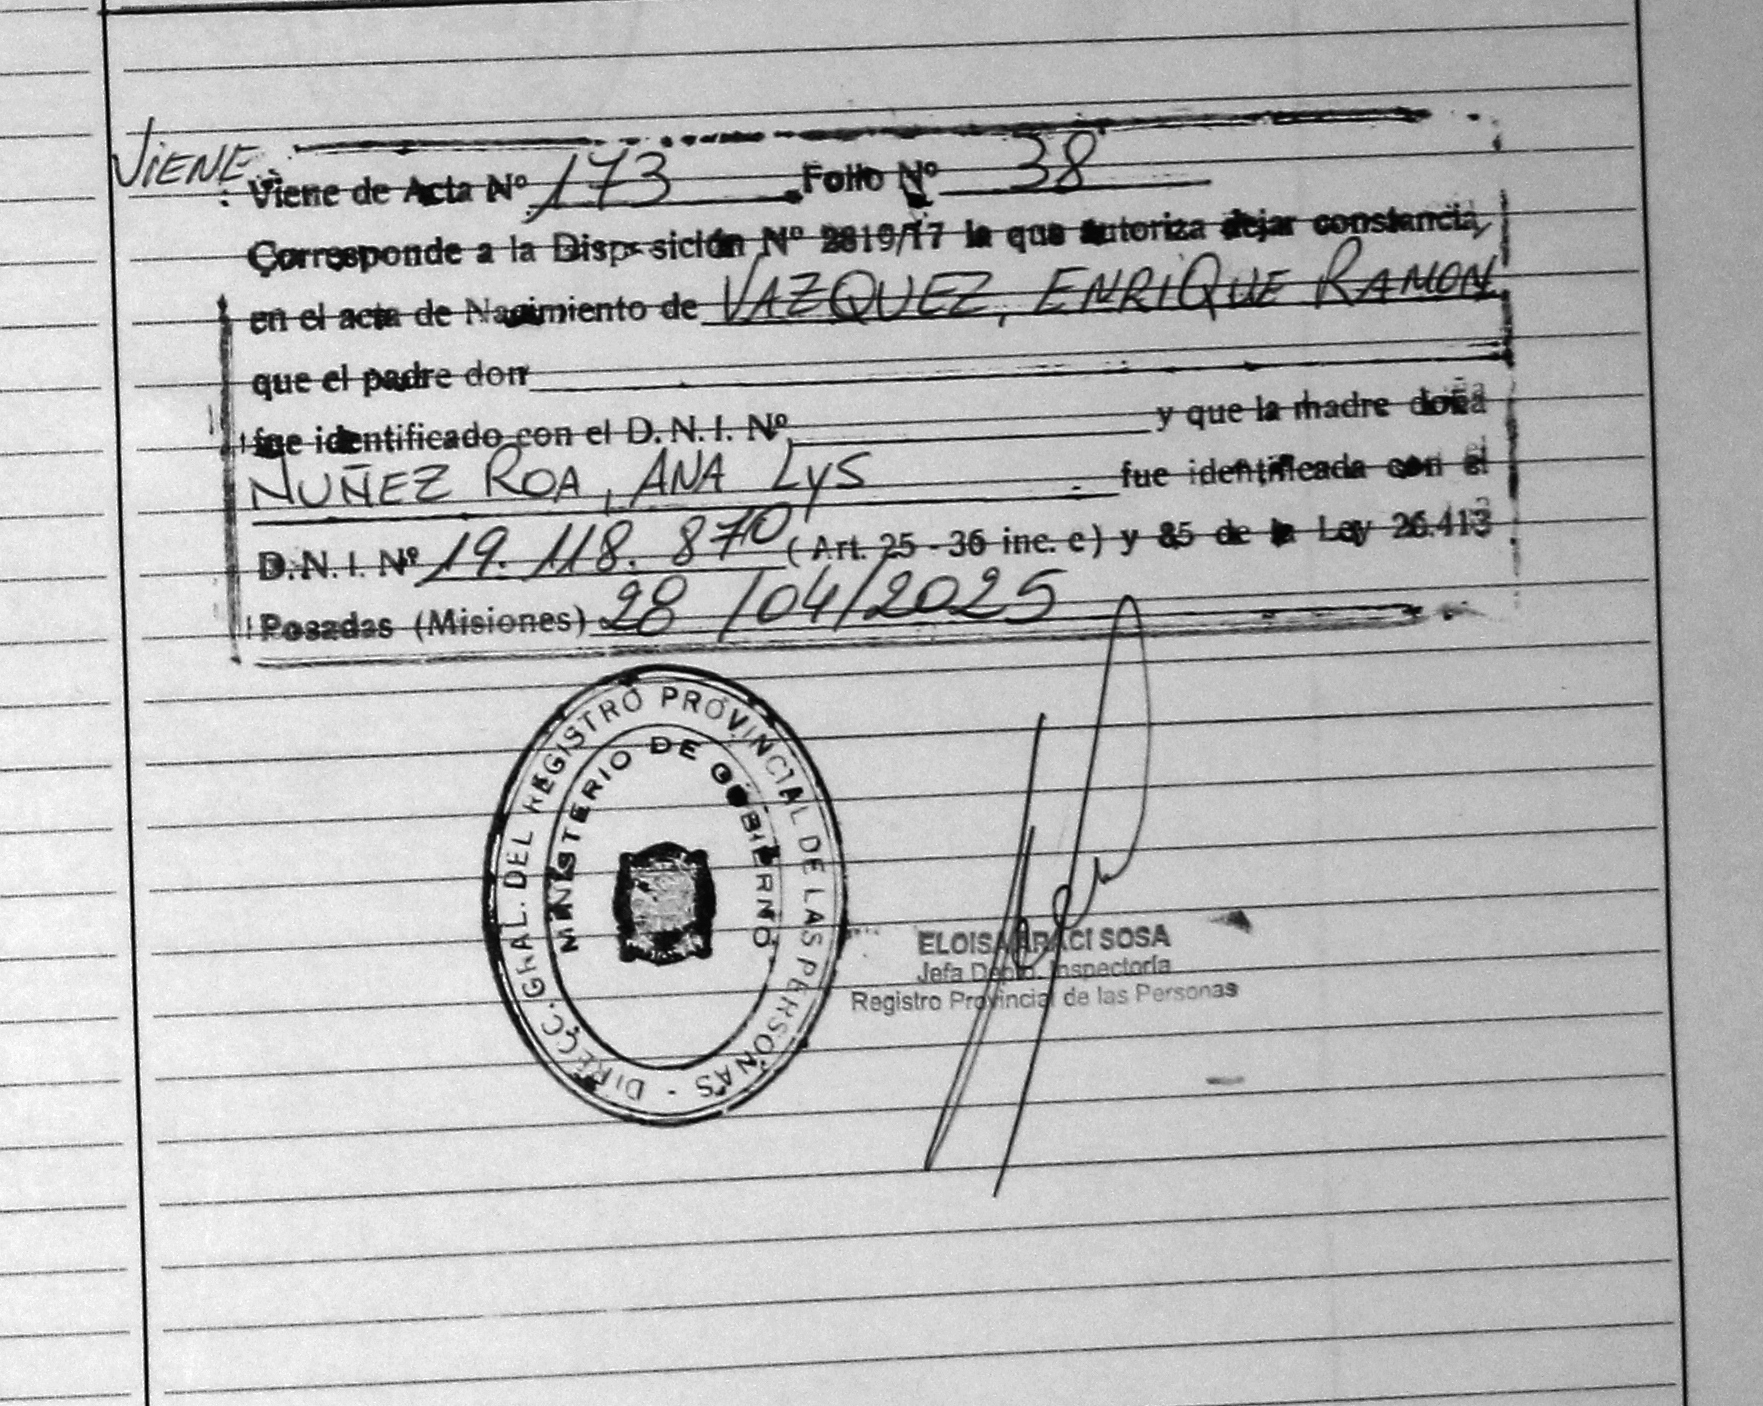 VIENE
Viene de Acta Nº 173 Folio Nº 38
Corresponde a la Disposición Nº 2819/17 la que autoriza dejar constancia,
en el acta de Nacimiento de VAZQUEZ, ENRIQUE RAMON
que el padre don
fue identificado con el D.N.I. Nº y que la madre doña
NUÑEZ ROA, ANA LYS fue identificada con el
D.N.I. Nº 19.118.870 (Art. 25 - 36 inc. c) y 85 de la Ley 26.413
Posadas (Misiones) 28/04/2025
DIRECC. GRAL. DEL REGISTRO PROVINCIAL DE LAS PERSONAS -
MINISTERIO DE GOBIERNO
ELOISA ARACI SOSA
Jefa Depto. Inspectoría
Registro Provincial de las Personas